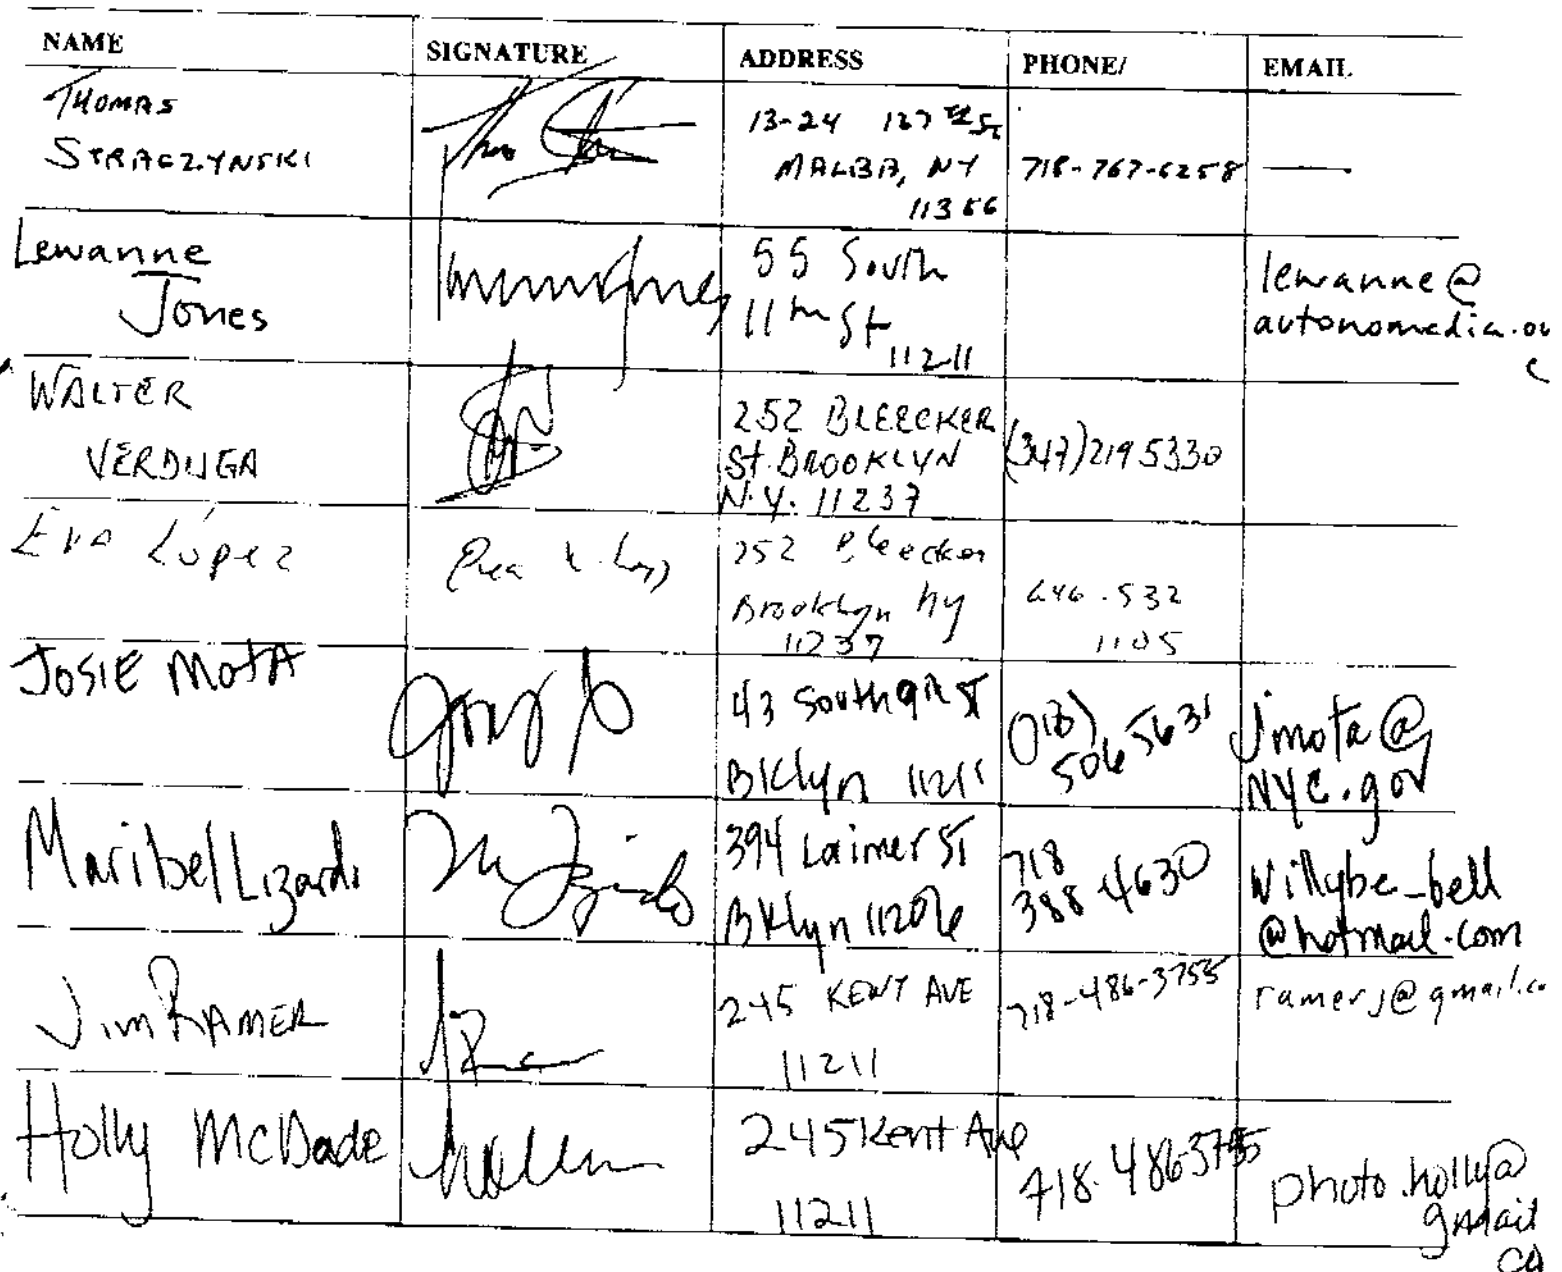 NAME SIGNATURE ADDRESS PHONE/ EMAIL
THOMAS
STRACZYNSKI
13-24
MALBA, NY
718-767-6258
Lewanne
Jones
55 South
11th St
11211
lewanne@
autonomedia.
WALTER
VERDUGA
252 BLEECKER
St. BROOKLYN
N.Y. 11237
(347)2195330
Eva López
252 Bleecker
Brooklyn ny
11237
646.532
1105
JOSIE MOTA
43 South 9th ST
BKlyn 11211
(718)
506 5631
jmota@
NYC.gov
Maribel Lizardi
394 Lorimer ST
BKlyn 11206
718
388-4630
Willybe_bell
@hotmail.com
Jim RAMER
245 KENT AVE
11211
718-486-3755
ramerj@gmail.co
Holly McDade
245 Kent Ave
11211
718-486-3755
photo.holly@
gmail